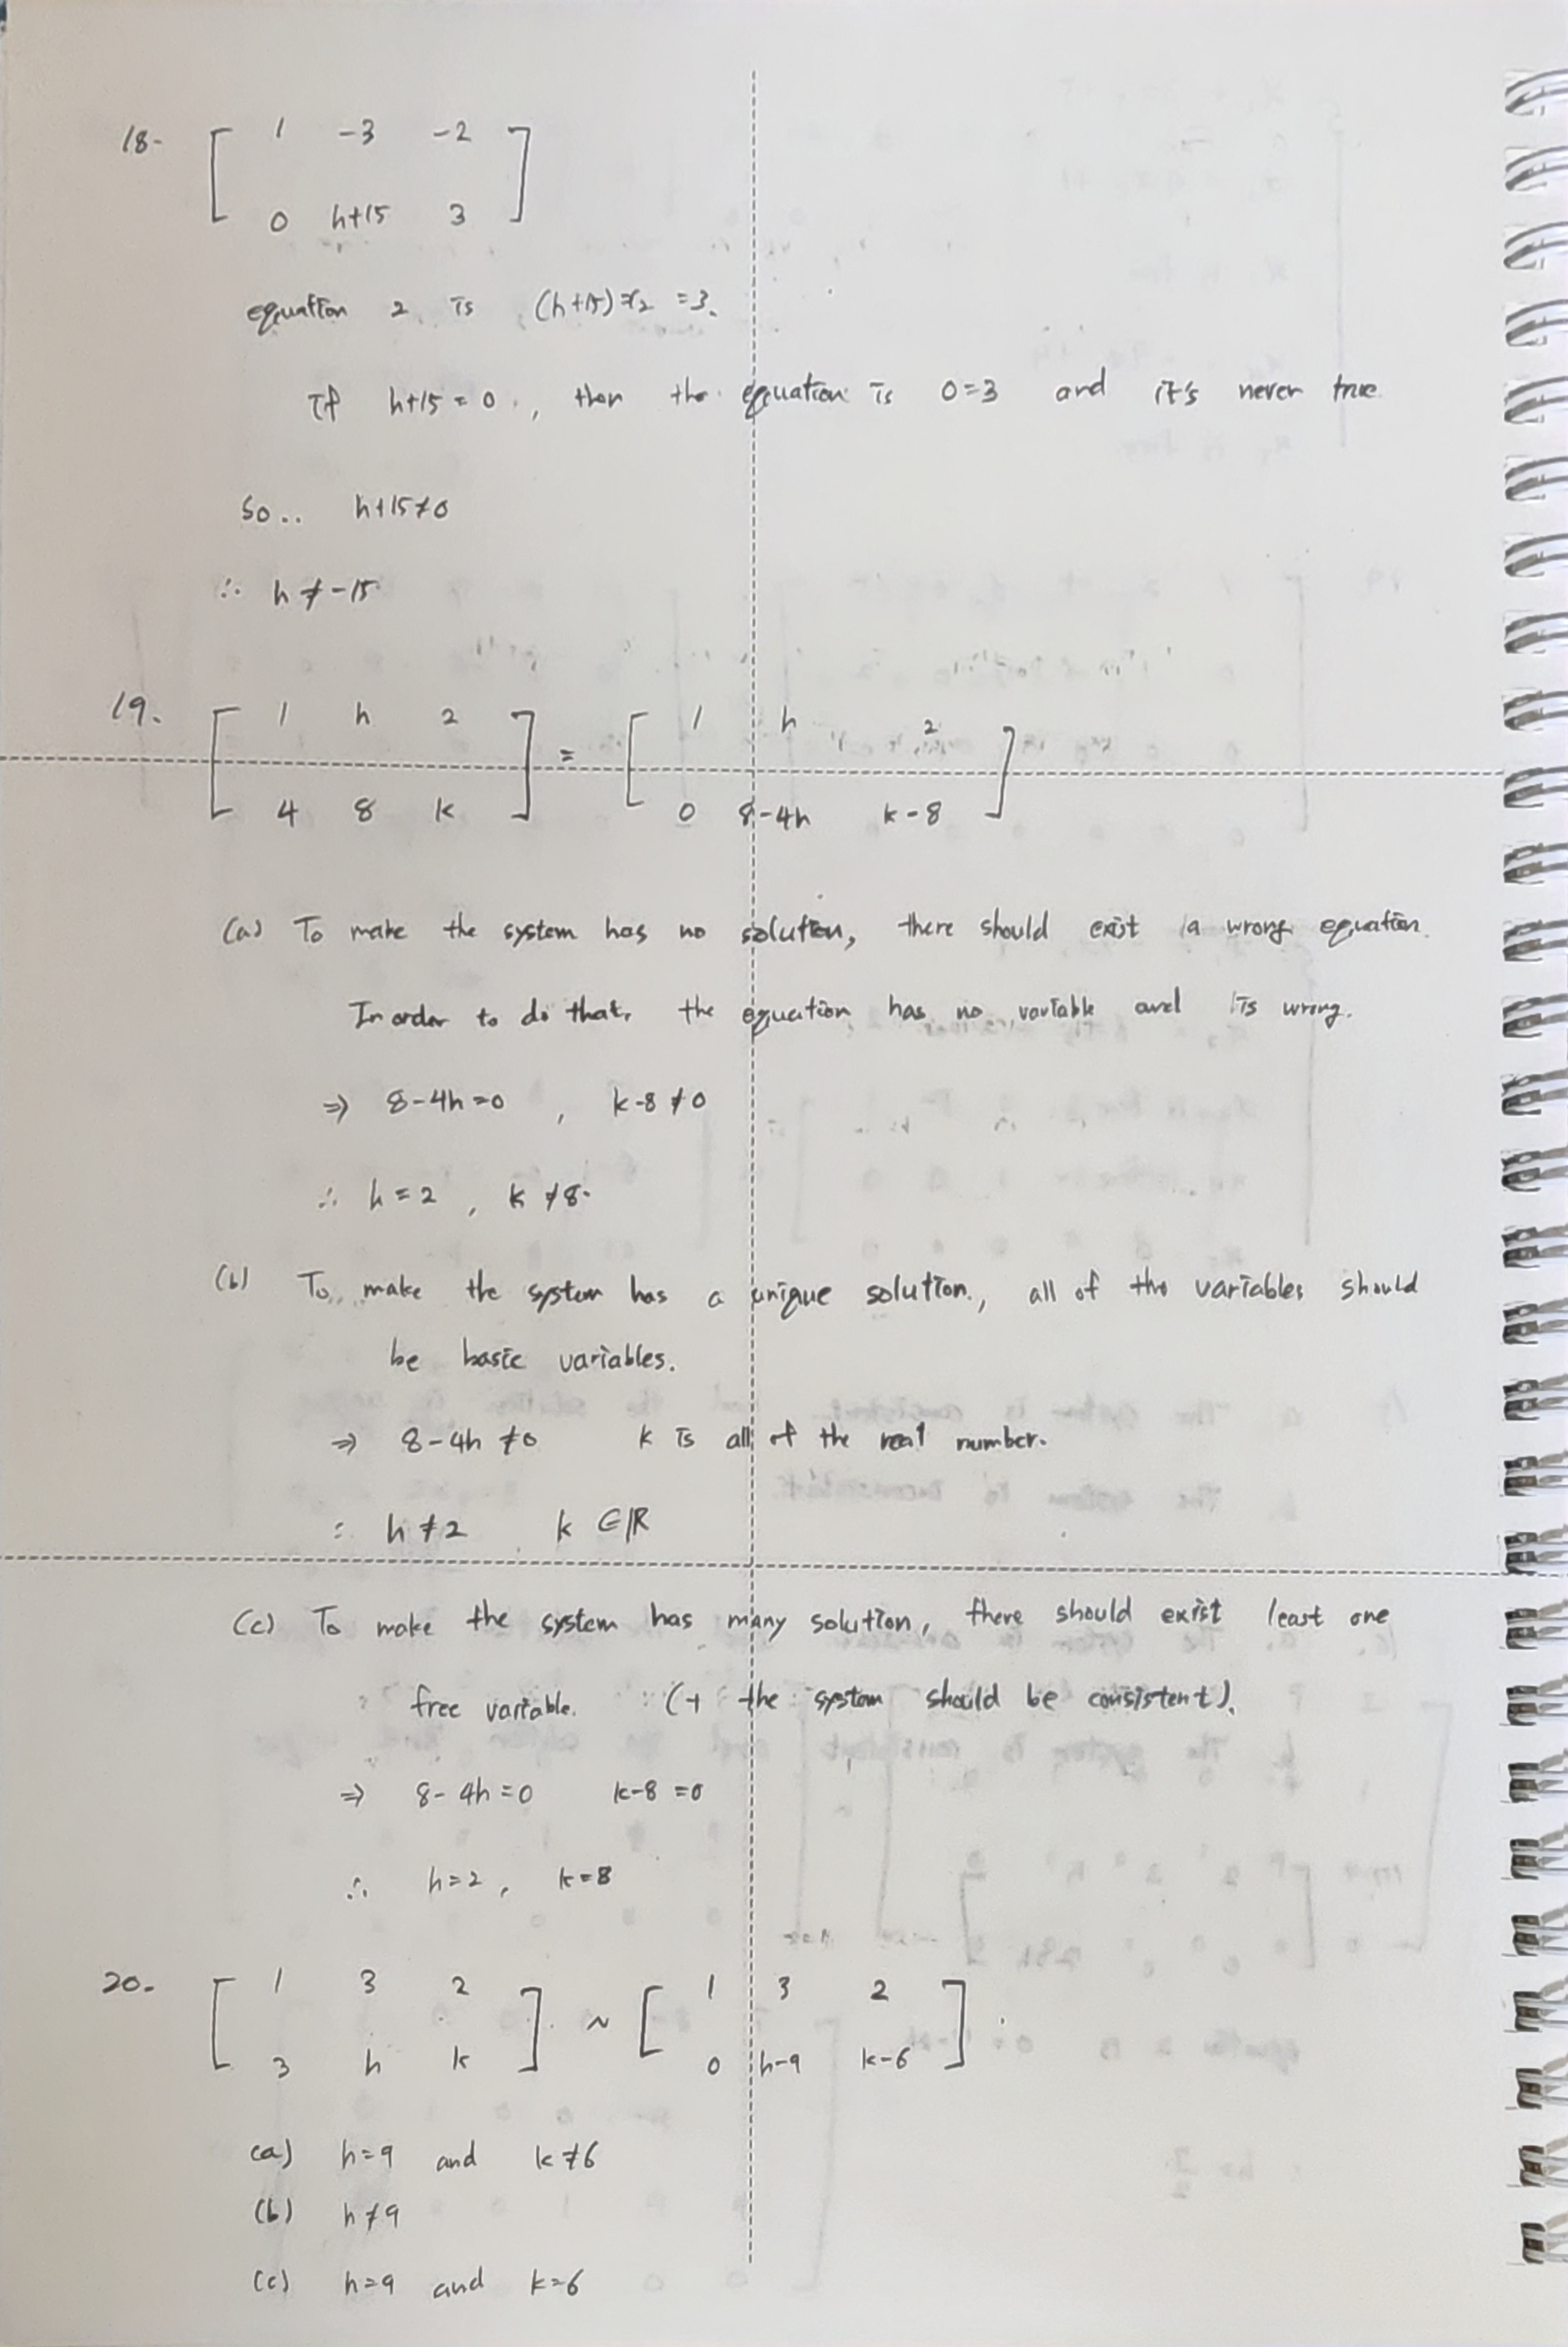 18. [ 1 -3 -2
0 h+15 3 ]
equation 2 is (h+15)x₂ = 3.
If h+15 = 0, then the equation is 0=3 and it's never true.
So.. h+15≠0
∴ h ≠ -15
19. [ 1 h 2 ] = [ 1 h 2 ]
[ 4 8 k ] [ 0 8-4h k-8 ]
(a) To make the system has no solution, there should exist a wrong equation.
In order to do that, the equation has no variable and is wrong.
⇒ 8-4h=0 , k-8≠0
∴ h=2 , k≠8.
(b) To make the system has a unique solution, all of the variables should
be basic variables.
⇒ 8-4h≠0 k is all of the real number.
∴ h≠2 k∈ℝ
(c) To make the system has many solution, there should exist least one
free variable. (+ the system should be consistent).
⇒ 8-4h=0 k-8=0
∴ h=2, k=8
20. [ 1 3 2 ] ~ [ 1 3 2 ]
[ 3 h k ] [ 0 h-9 k-6 ]
(a) h=9 and k≠6
(b) h≠9
(c) h=9 and k=6